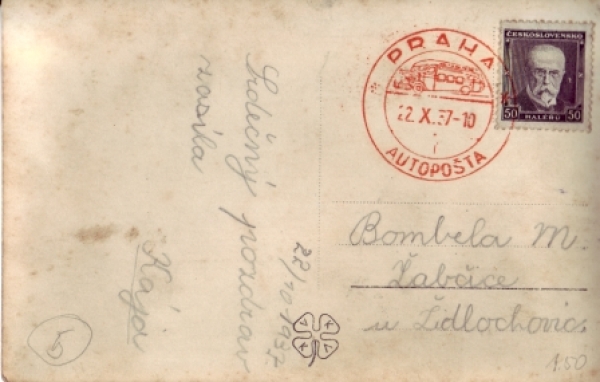 Srdečný pozdrav
zasílá
Kája
22/10 1937
PRAHA
22.X.37-10
AUTOPOŠTA
ČESKOSLOVENSKO
50 HALÉŘŮ 50
Bombela M.
Žabčice
u Židlochovic
5
1.50